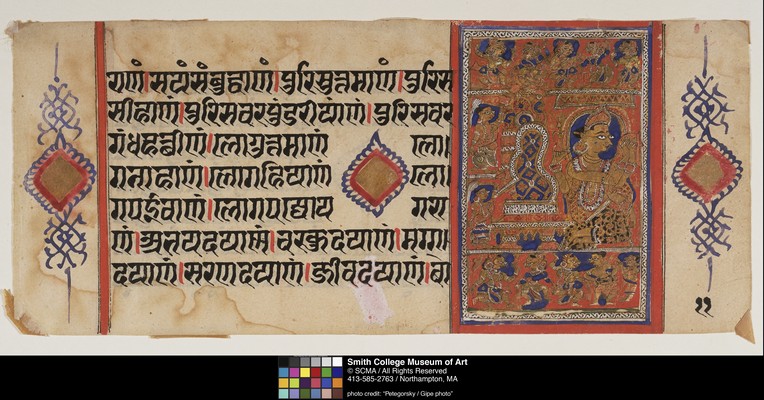 राणं।सयंसंबुद्धाणं।पुरिसुत्तमाणं।पुरिस
सीहाणं।पुरिसवरपुंडरीयाणं।पुरिसवर
गंधहत्थीणं।लोगुत्तमाणं लो
गनाहाणं।लोगहियाणं लो
गपईवाणं।लोगपज्जोय गरा
णं।अभयदयाणं।चक्खुदयाणं।मग्ग
दयाणं।सरणदयाणं।जीवदयाणं।बो
११
Smith College Museum of Art
© SCMA / All Rights Reserved
413-585-2763 / Northampton, MA
photo credit: "Petegorsky / Gipe photo"